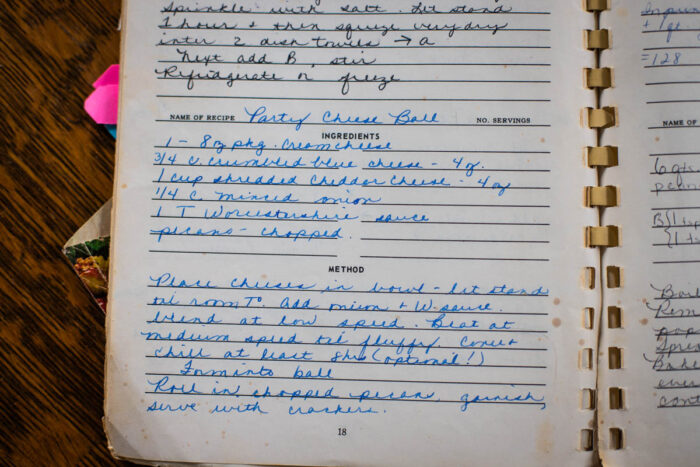 Sprinkle with salt. Let stand
1 hour + then squeeze very dry
inter 2 dish towels → a
Next add B, stir
Refridgerate or freeze
NAME OF RECIPE Party Cheese Ball NO. SERVINGS
INGREDIENTS
1 - 8 oz pkg. Cream cheese
3/4 c. crumbled blue cheese - 4 oz.
1 cup shredded Cheddar Cheese - 4 oz
1/4 c. minced onion
1 T Worcestershire sauce
pecans - chopped.
METHOD
Place cheeses in bowl - let stand
til room T°. Add onion + W. sauce.
blend at low speed. Beat at
medium speed til fluffy. Cover +
chill at least 8 hrs (optional!)
Form into ball
Roll in chopped pecans, garnish,
serve with crackers.
18
= 128
NAME OF
6 
B
Bake